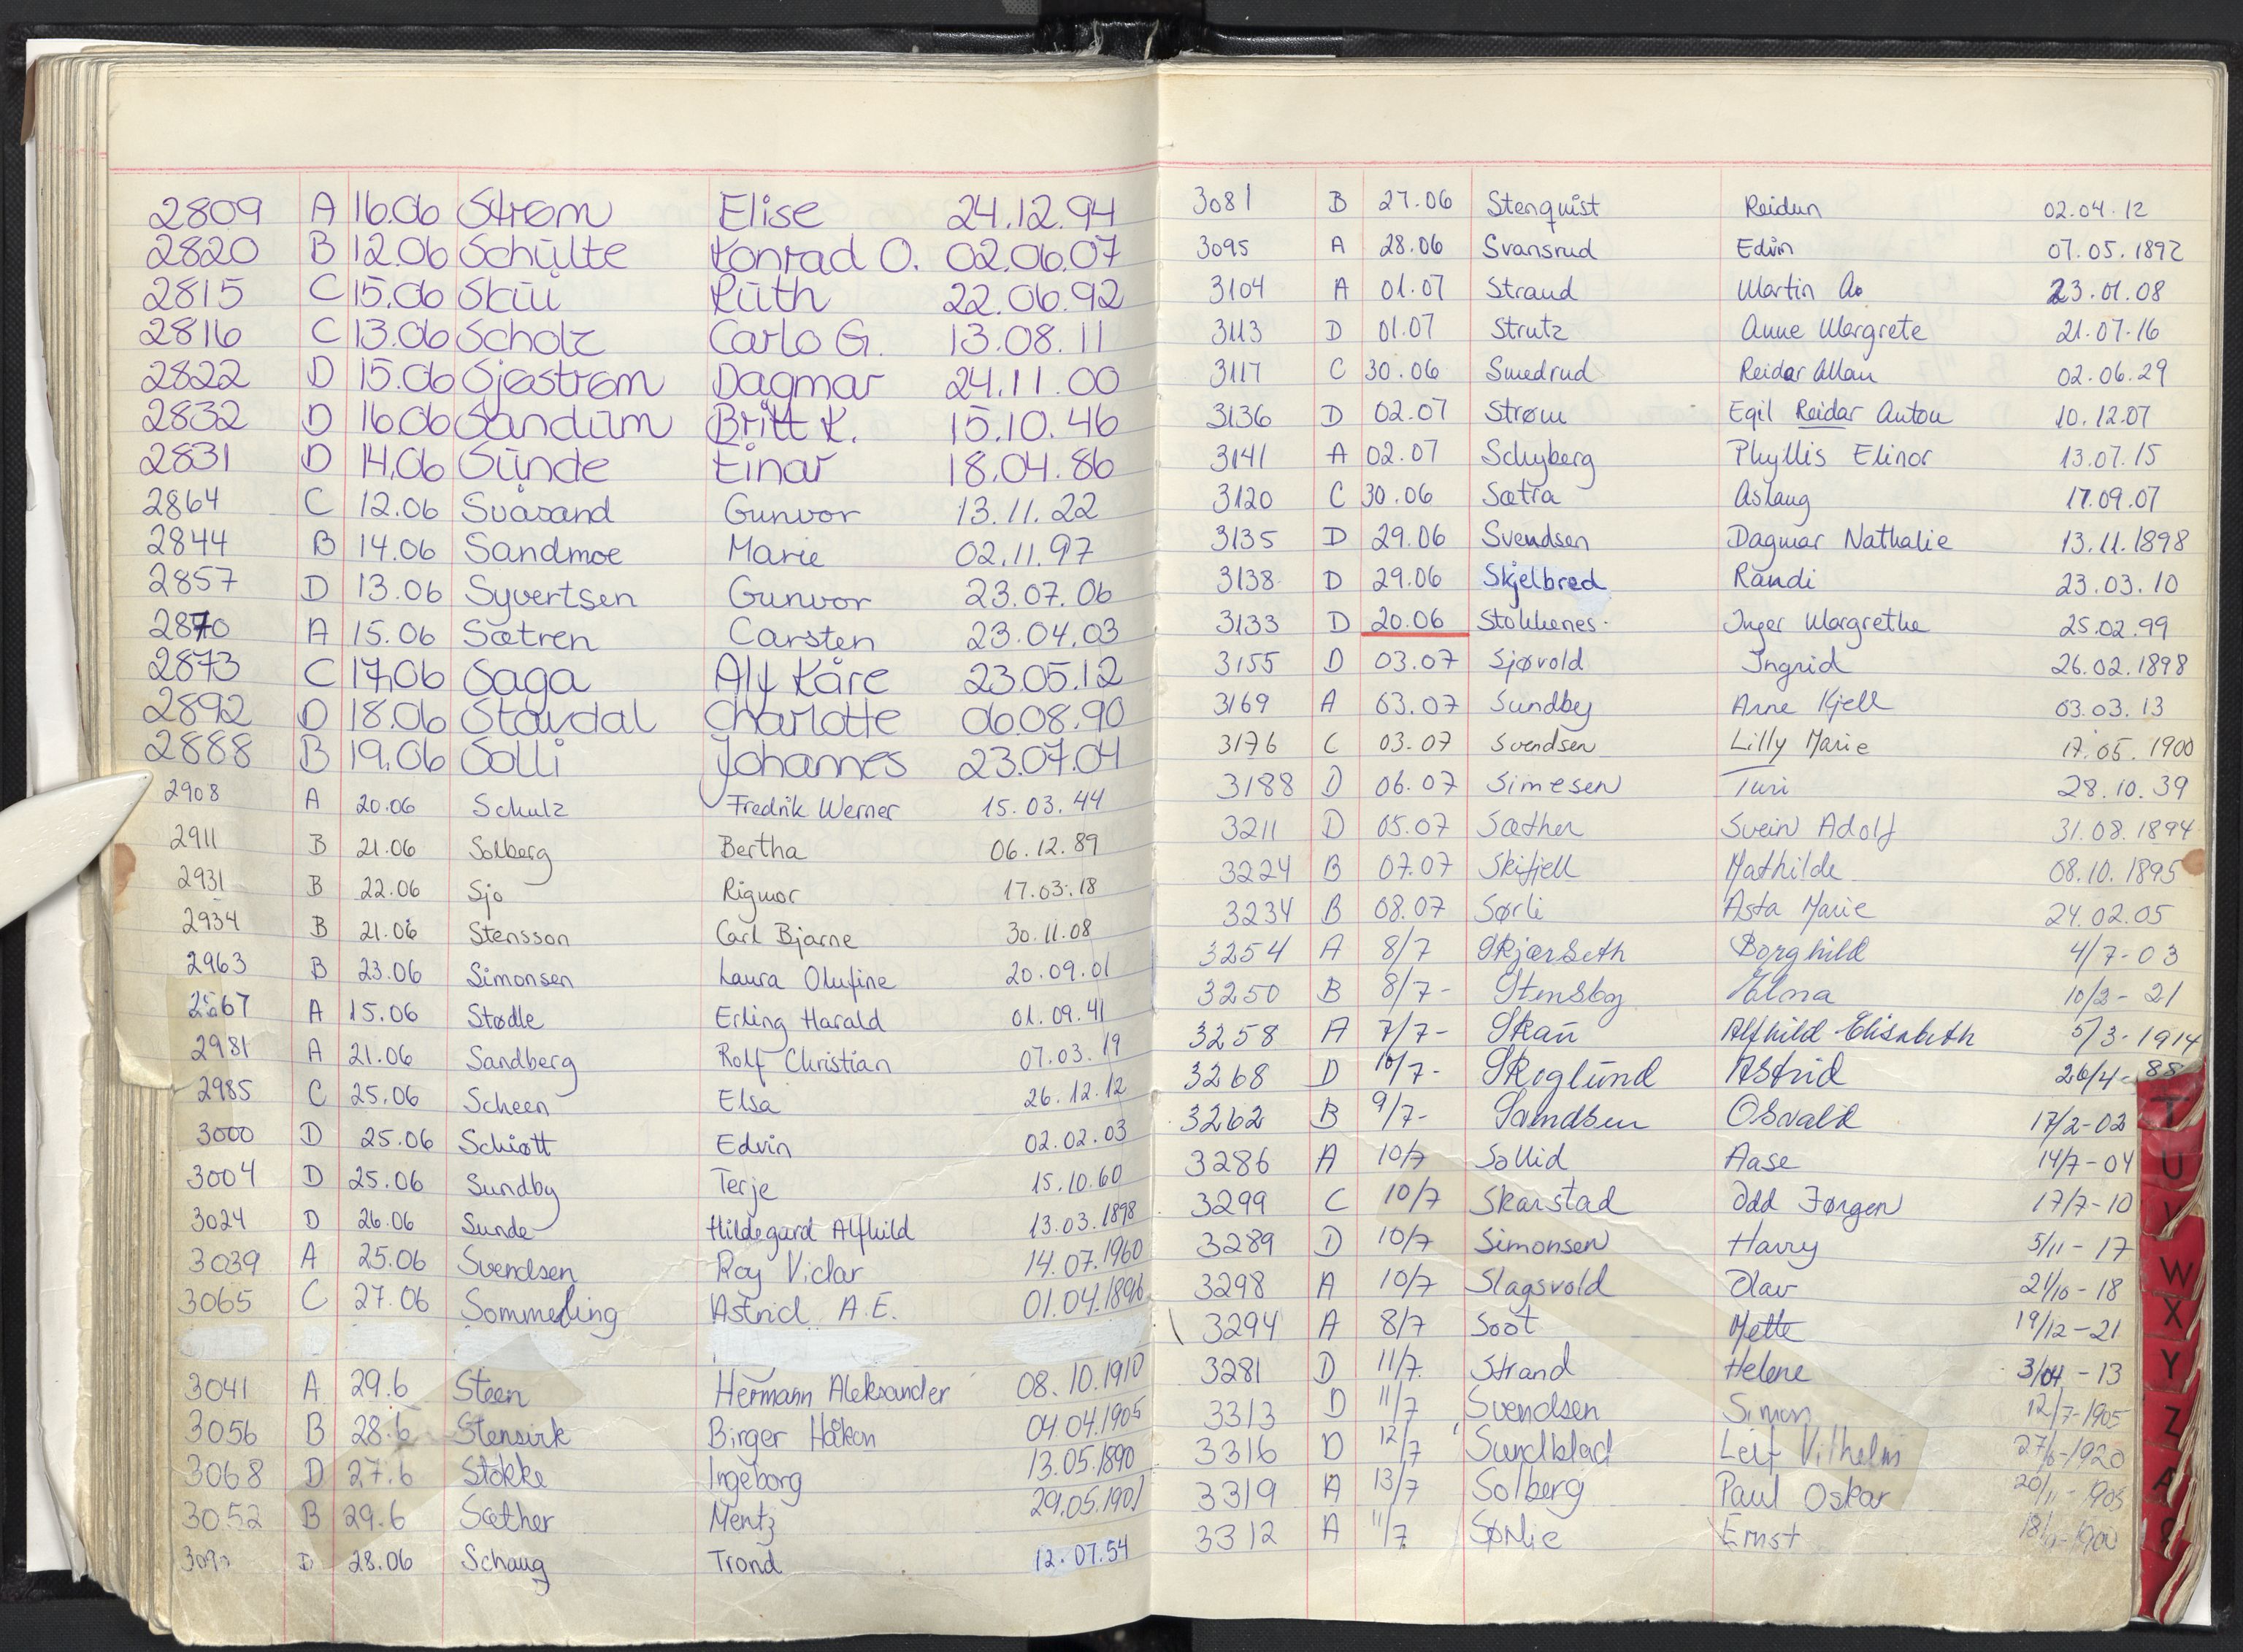 2809 A 16.06 Strøm Elise 24.12.94
2820 B 12.06 Schülte Konrad O. 02.06.07
2815 C 15.06 Skui Rüth 22.06.92
2816 C 13.06 Scholz Carlo G. 13.08.11
2822 D 15.06 Sjøstrøm Dagmar 24.11.00
2832 D 16.06 Sandüm Britt K. 15.10.46
2831 D 14.06 Sünde Einar 18.04.86
2864 C 12.06 Svåsand Gunvor 13.11.22
2844 B 14.06 Sandmoe Marie 02.11.97
2857 D 13.06 Syvertsen Gunvor 23.07.06
2870 A 15.06 Sætren Carsten 23.04.03
2873 C 17.06 Saga Alf Kåre 23.05.12
2892 D 18.06 Stavdal Charlotte 06.08.90
2888 B 19.06 Solli Johannes 23.07.04
2908 A 20.06 Schulz Fredrik Werner 15.03.44
2911 B 21.06 Solberg Bertha 06.12.89
2931 B 22.06 Sjo Rigmor 17.03.18
2934 B 21.06 Stensson Carl Bjarne 30.11.08
2963 B 23.06 Simonsen Laura Olufine 20.09.01
2567 A 15.06 Stødle Erling Harald 01.09.41
2981 A 21.06 Sandberg Rolf Christian 07.03.19
2985 C 25.06 Scheen Elsa 26.12.12
3000 D 25.06 Schiøtt Edvin 02.02.03
3004 D 25.06 Sundby Terje 15.10.60
3024 D 26.06 Sunde Hildegard Alfhild 13.03.1898
3039 A 25.06 Svendsen Roy Vidar 14.07.1960
3065 C 27.06 Sommerling Astrid A.E. 01.04.1896
3041 A 29.6 Steen Hermann Aleksander 08.10.1910
3056 B 28.6 Stensvik Birger Håkon 04.04.1905
3068 D 27.6 Stokke Ingeborg 13.05.1890
3052 B 29.6 Sæther Mentz 29.05.1901
D 28.06 Schaug Trond 12.07.54
3081 B 27.06 Stenquist Reidun 02.04.12
3095 A 28.06 Svansrud Edvin 07.05.1892
3104 A 01.07 Strand Martin A. 23.01.08
3113 D 01.07 Strutz Anne Margrete 21.07.16
3117 C 30.06 Smedrud Reidar Allan 02.06.29
3136 D 02.07 Strøm Egil Reidar Anton 10.12.07
3141 A 02.07 Schyberg Phyllis Elinor 13.07.15
3120 C 30.06 Sætra Aslaug 17.09.07
3135 D 29.06 Svendsen Dagmar Nathalie 13.11.1898
3138 D 29.06 Skjelbred Randi 23.03.10
3133 D 20.06 Stokkenes Inger Margrethe 25.02.99
3155 D 03.07 Sjøvold Ingrid 26.02.1898
3169 A 03.07 Sundby Arne Kjell 03.03.13
3176 C 03.07 Svendsen Lilly Marie 17.05.1900
3188 D 06.07 Simesen Turi 28.10.39
3211 D 05.07 Sæther Svein Adolf 31.08.1894
3224 B 07.07 Skifjell Mathilde 08.10.1895
3234 B 08.07 Sørli Asta Marie 24.02.05
3254 A 8/7 Skjærseth Borghild 4/7-03
3250 B 8/7- Stensby 10/2-21
3258 A 7/7- Skaü Alfhild Elisabeth 5/3-1914
3268 D 10/7- Skoglünd Astrid 26/4-88
3262 B 9/7- Samdsen Osvald 17/2-02
3286 A 10/7 Sollid Aase 14/7-04
3299 C 10/7 Skarstad Odd Jørgen 17/7-10
3289 D 10/7 Simonsen Harry 5/11-17
3298 A 10/7 Slagsvold Olav 21/10-18
3294 A 8/7 Soot Mette 19/12-21
3281 D 11/7 Strand Helene 3/04-13
3313 D 11/7 Svendsen Simon 12/7-1905
3316 D 12/7 Sundblad Leif Vilhelm 27/6-1920
3319 A 13/7 Solberg Paul Oskar 20/11-1905
3312 A 11/7 Sørlie Ernst
T
U
V
W
X
Y
Z